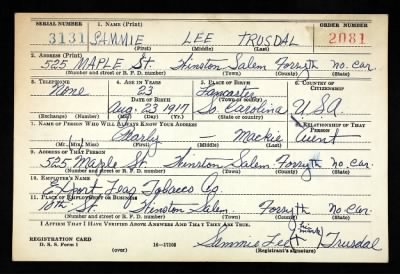 SERIAL NUMBER 1. NAME (Print) ORDER NUMBER
3131 SAMMIE LEE TRUSDAL 2081
(First) (Middle) (Last)
2. ADDRESS (Print)
525 MAPLE St. Winston Salem Forsyth No. Car.
(Number and street or R. F. D. number) (Town) (County) (State)
3. TELEPHONE 4. AGE IN YEARS 5. PLACE OF BIRTH 6. COUNTRY OF CITIZENSHIP
None 23 Lancaster
DATE OF BIRTH (Town or county)
Aug. 23 1917 So. Carolina U.S.A.
(Exchange) (Number) (Mo.) (Day) (Yr.) (State or country)
7. NAME OF PERSON WHO WILL ALWAYS KNOW YOUR ADDRESS 8. RELATIONSHIP OF THAT PERSON
— Mackie Aunt
(Mr., Mrs., Miss) (First) (Middle) (Last)
9. ADDRESS OF THAT PERSON
525 Maple St. Winston Salem Forsyth No. Car.
(Number and street or R. F. D. number) (Town) (County) (State)
10. EMPLOYER'S NAME
Export Leaf Tobacco Co.
11. PLACE OF EMPLOYMENT OR BUSINESS
10th St. Winston Salem Forsyth No. Car.
(Number and street or R. F. D. number) (Town) (County) (State)
I AFFIRM THAT I HAVE VERIFIED ABOVE ANSWERS AND THAT THEY ARE TRUE.
REGISTRATION CARD
D. S. S. Form 1 (over) 16—17105 Sammie Lee Trusdal
(Registrant's signature)